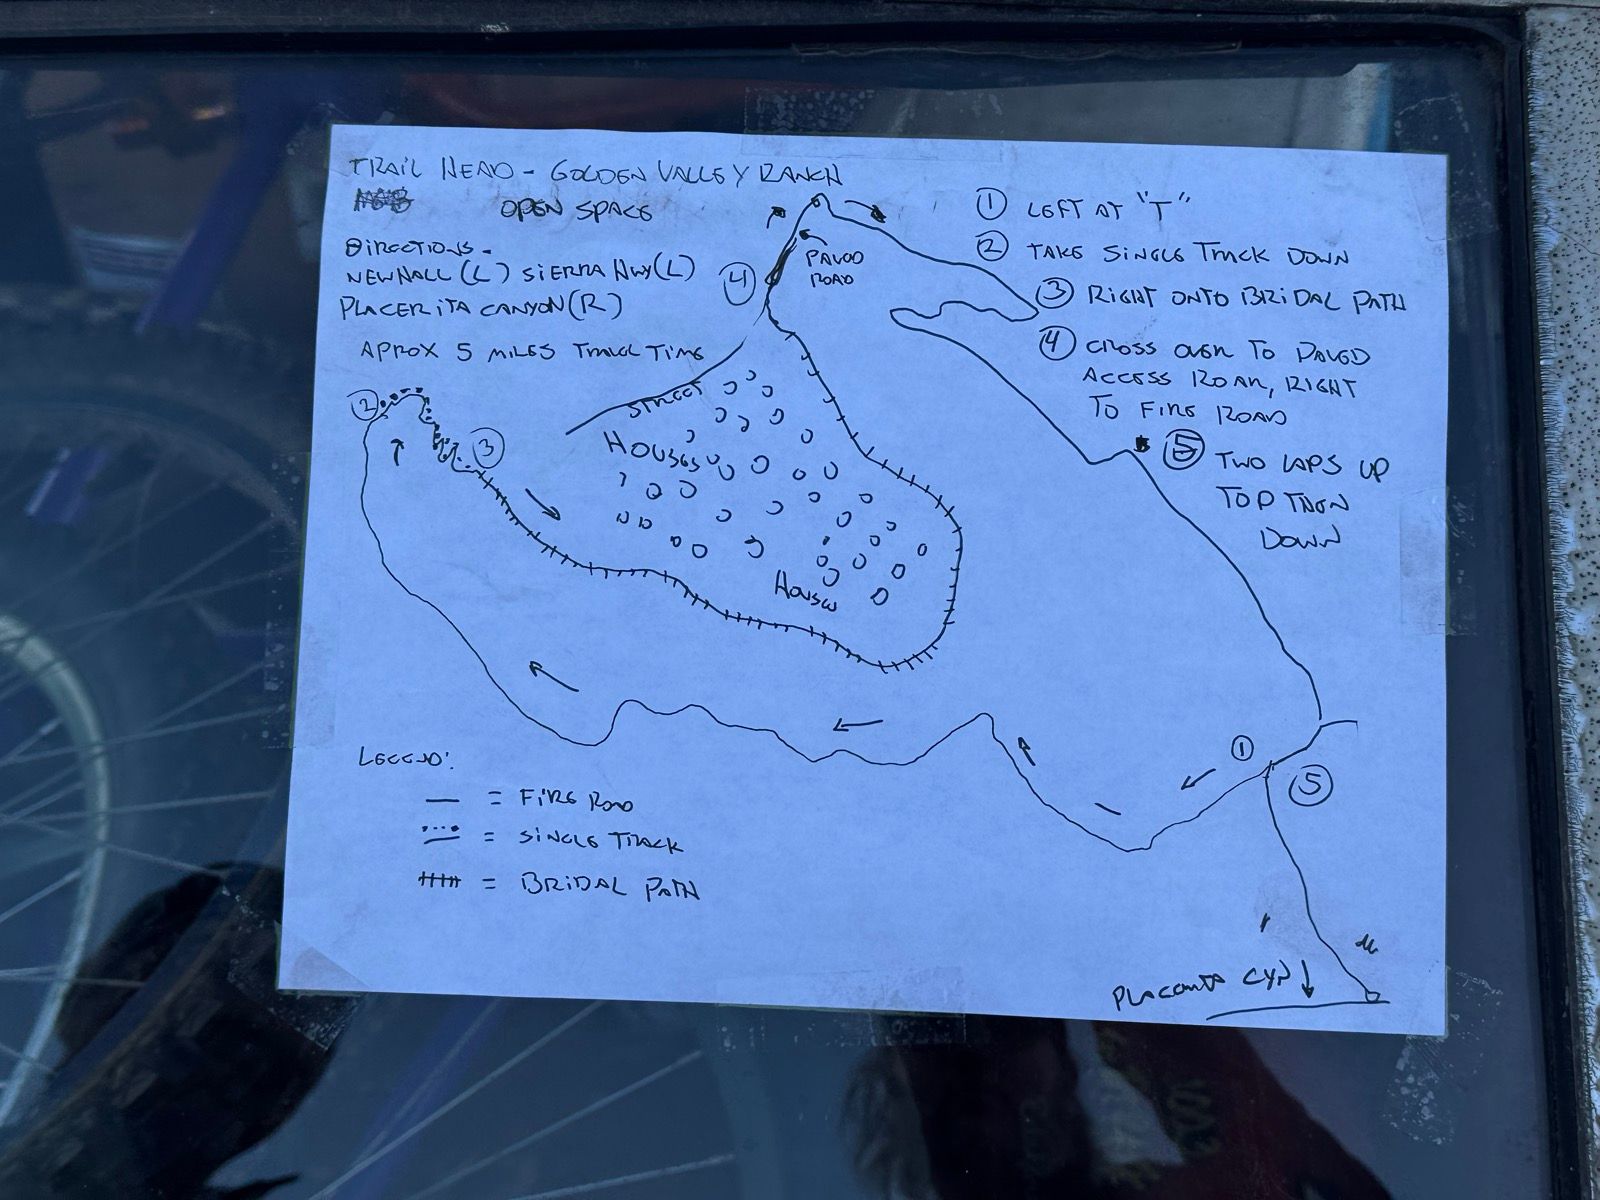 TRAIL HEAD - GOLDEN VALLEY RANCH
OPEN SPACE
DIRECTIONS -
NEWHALL (L) SIERRA HWY (L)
PLACERITA CANYON (R)
APROX 5 MILES TRAVEL TIME
① LEFT AT "T"
② TAKE SINGLE TRACK DOWN
③ RIGHT ONTO BRIDAL PATH
④ CROSS OVER TO PAVED
ACCESS ROAD, RIGHT
TO FIRE ROAD
⑤ TWO LAPS UP
TOP THEN
DOWN
④
PAVED
ROAD
②
③
STREET
HOUSES
HOUSES
①
⑤
LEGEND:
— = FIRE ROAD
= SINGLE TRACK
= BRIDAL PATH
PLACERITA CYN